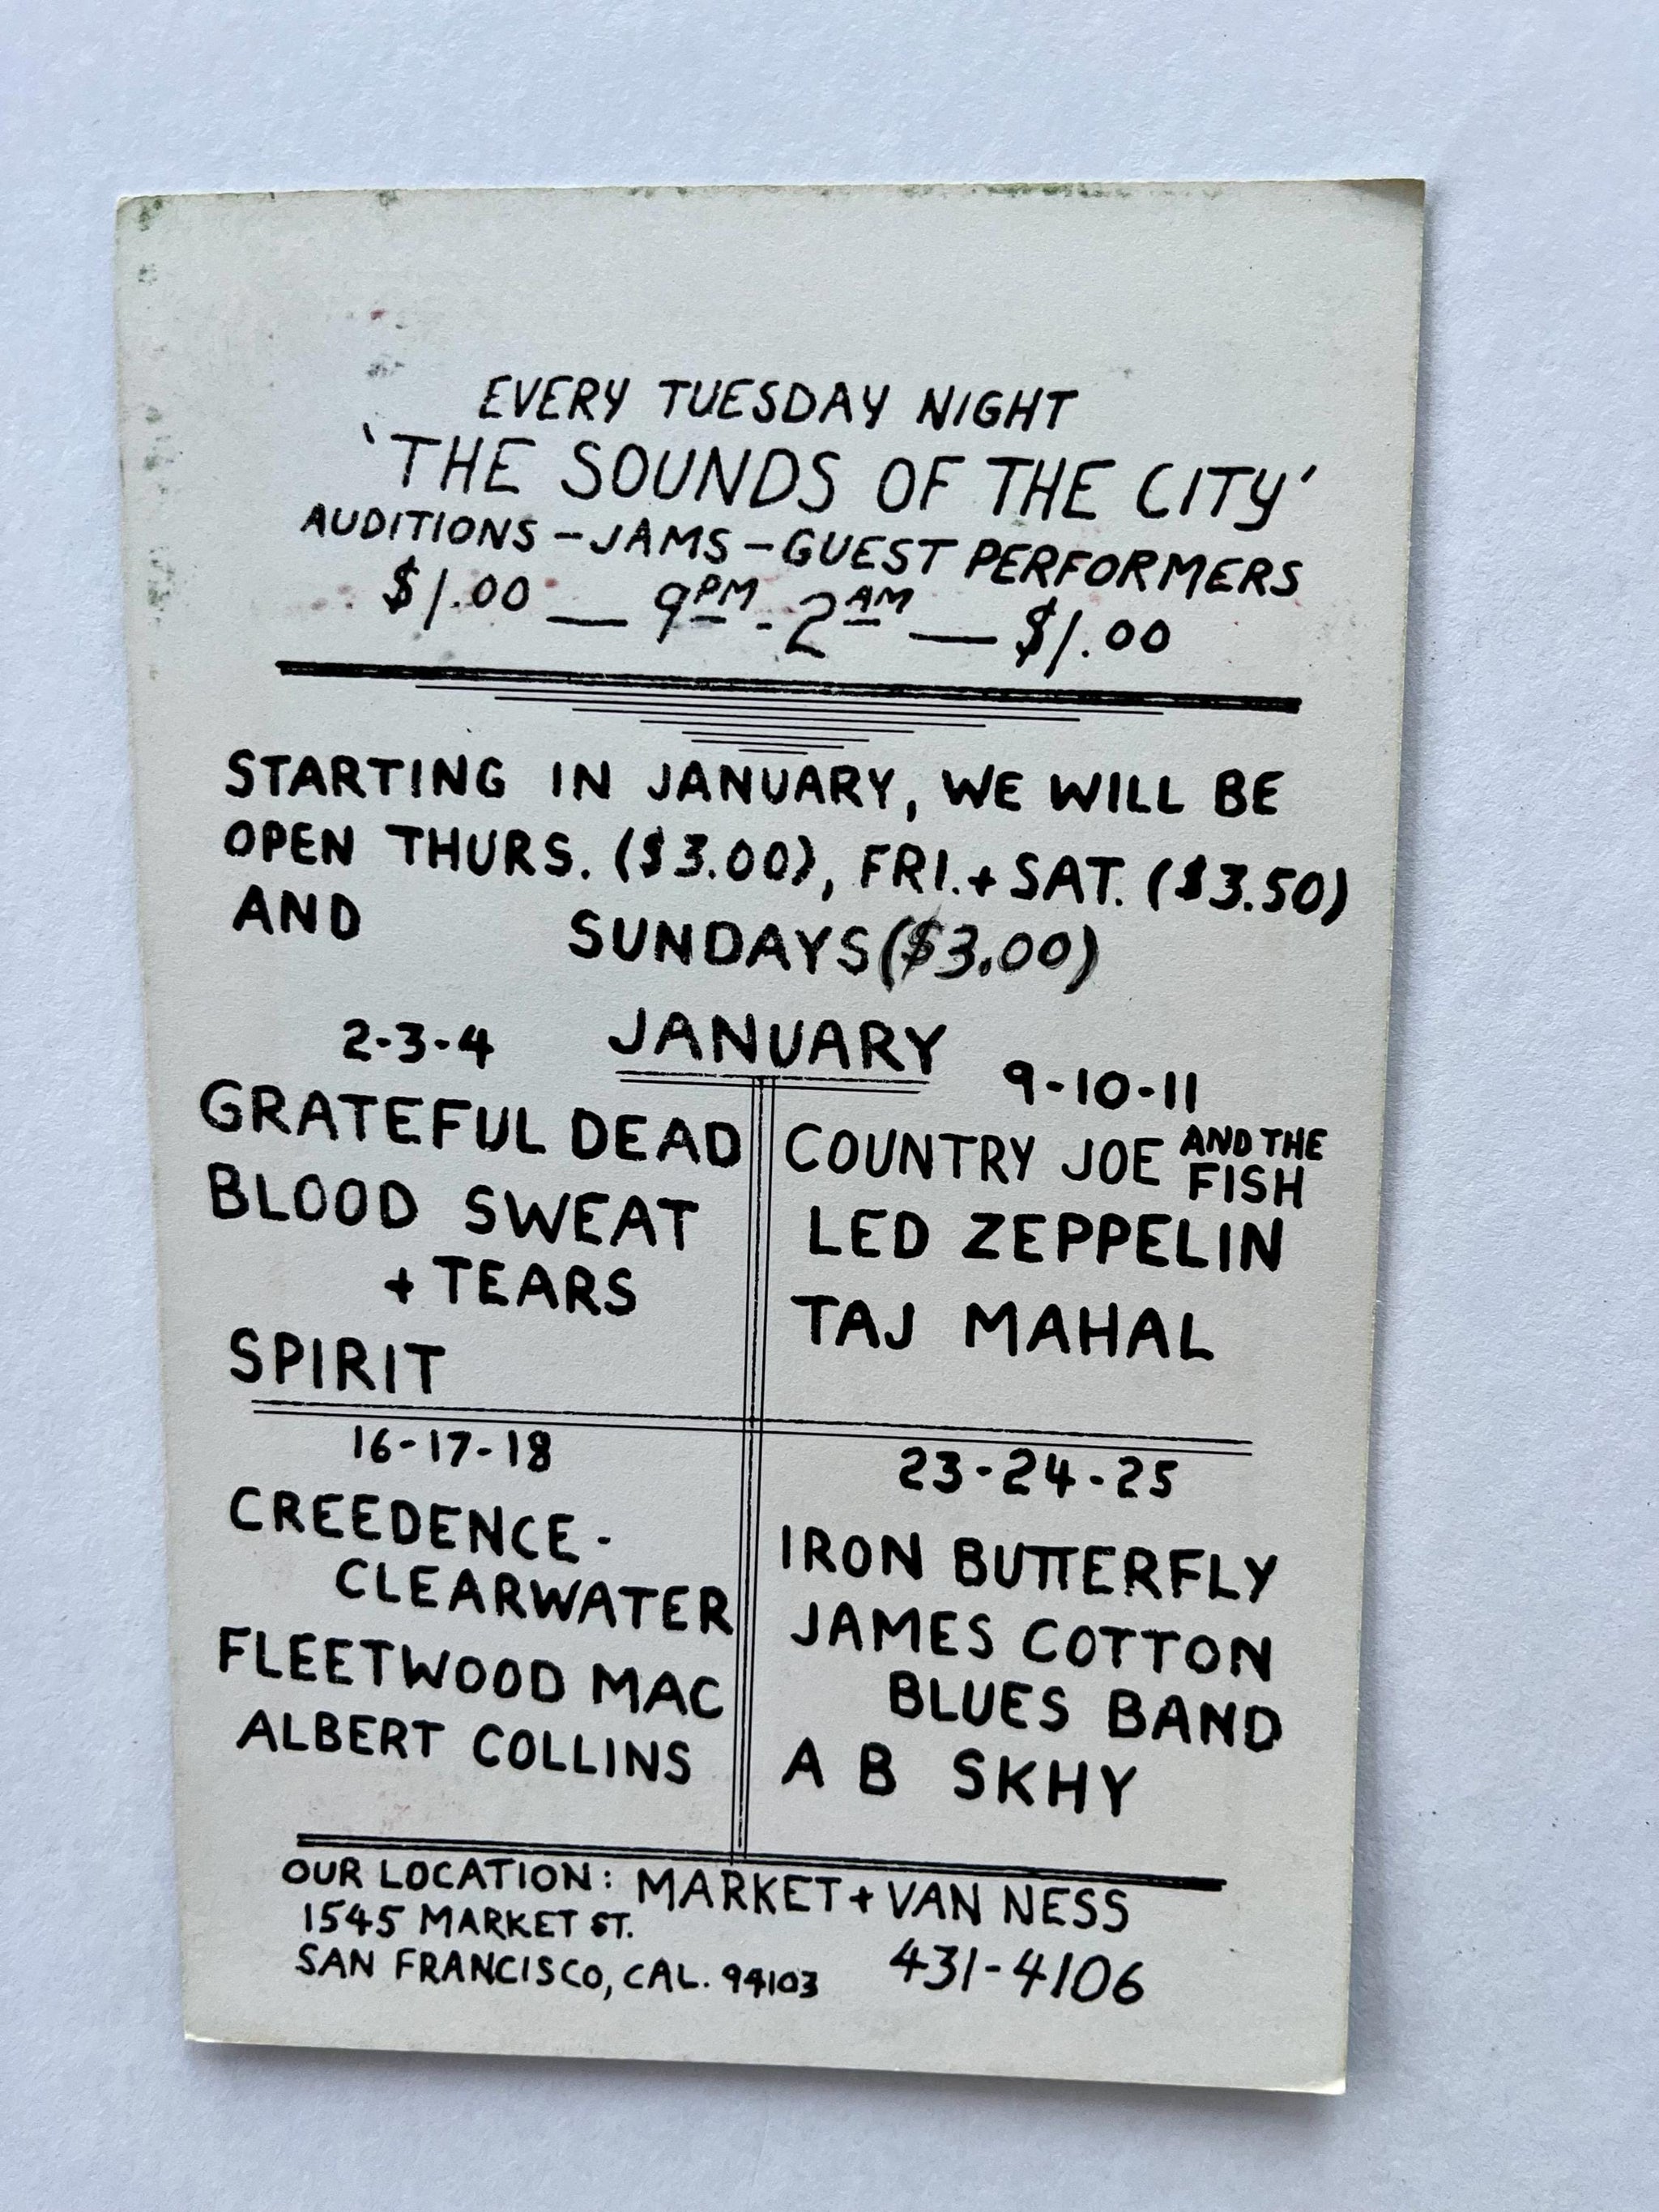 EVERY TUESDAY NIGHT
'THE SOUNDS OF THE CITY'
AUDITIONS - JAMS - GUEST PERFORMERS
$1.00 — 9PM - 2AM — $1.00
STARTING IN JANUARY, WE WILL BE
OPEN THURS. ($3.00), FRI. + SAT. ($3.50)
AND SUNDAYS ($3.00)
JANUARY
2-3-4
GRATEFUL DEAD
BLOOD SWEAT
+ TEARS
SPIRIT
9-10-11
COUNTRY JOE AND THE
FISH
LED ZEPPELIN
TAJ MAHAL
16-17-18
CREEDENCE-
CLEARWATER
FLEETWOOD MAC
ALBERT COLLINS
23-24-25
IRON BUTTERFLY
JAMES COTTON
BLUES BAND
A B SKHY
OUR LOCATION: MARKET + VAN NESS
1545 MARKET ST.
SAN FRANCISCO, CAL. 94103 431-4106